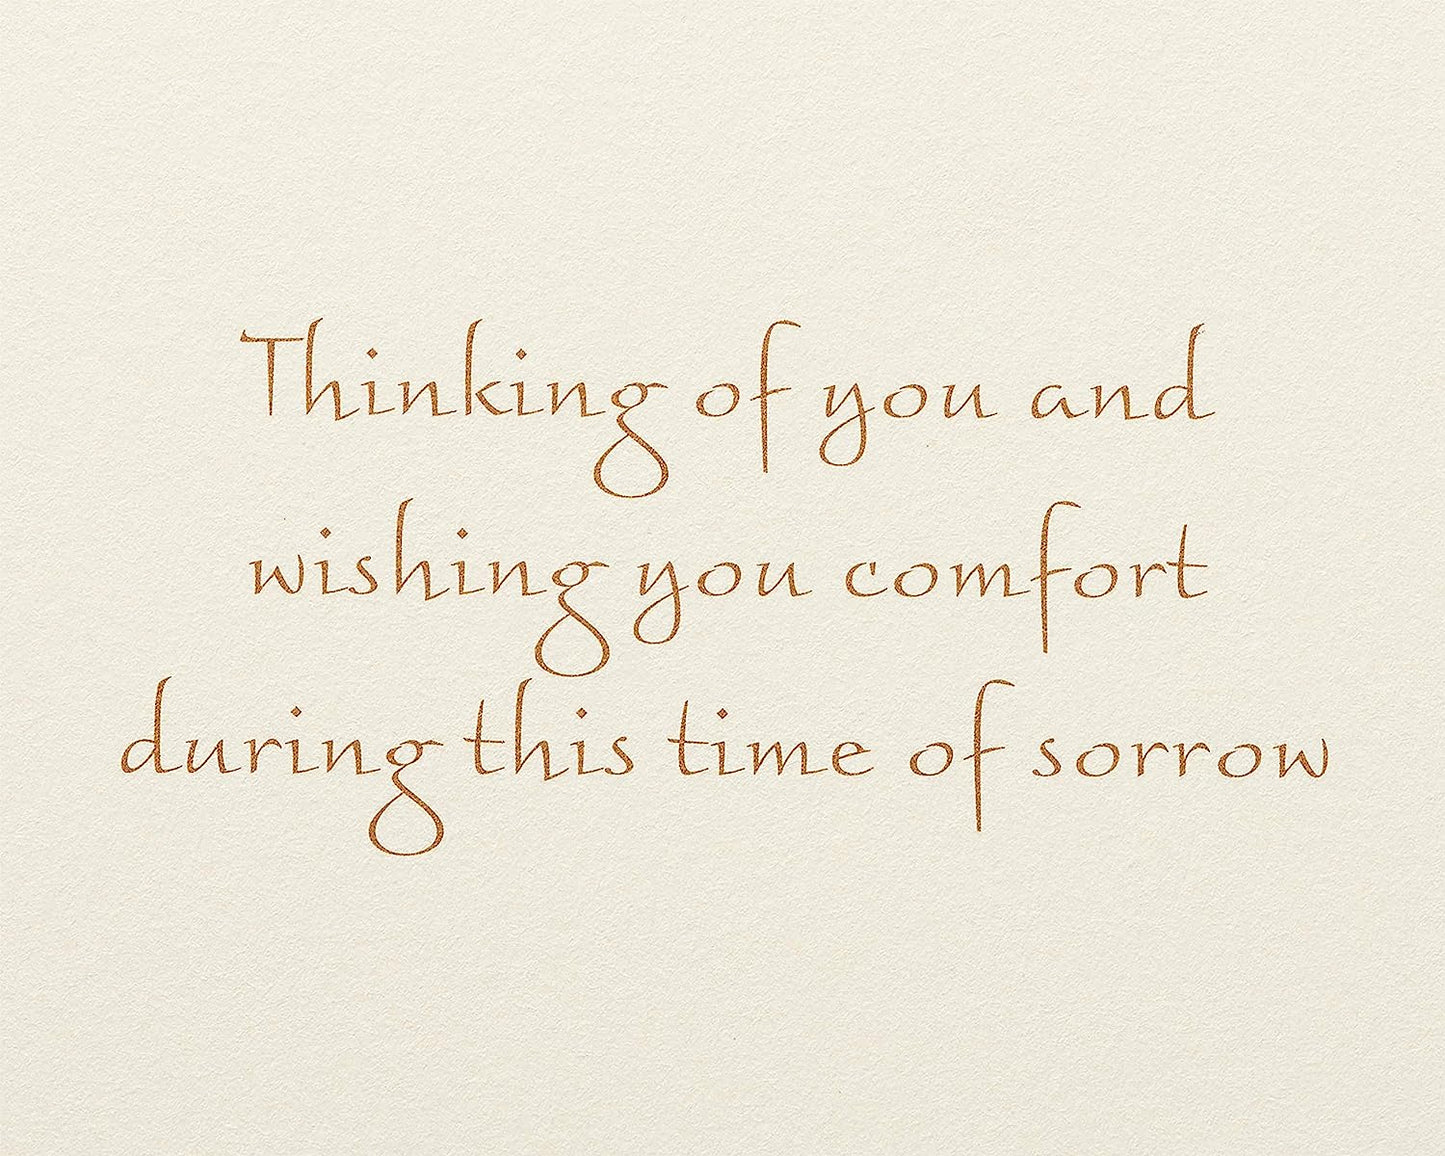 Thinking of you and
wishing you comfort
during this time of sorrow